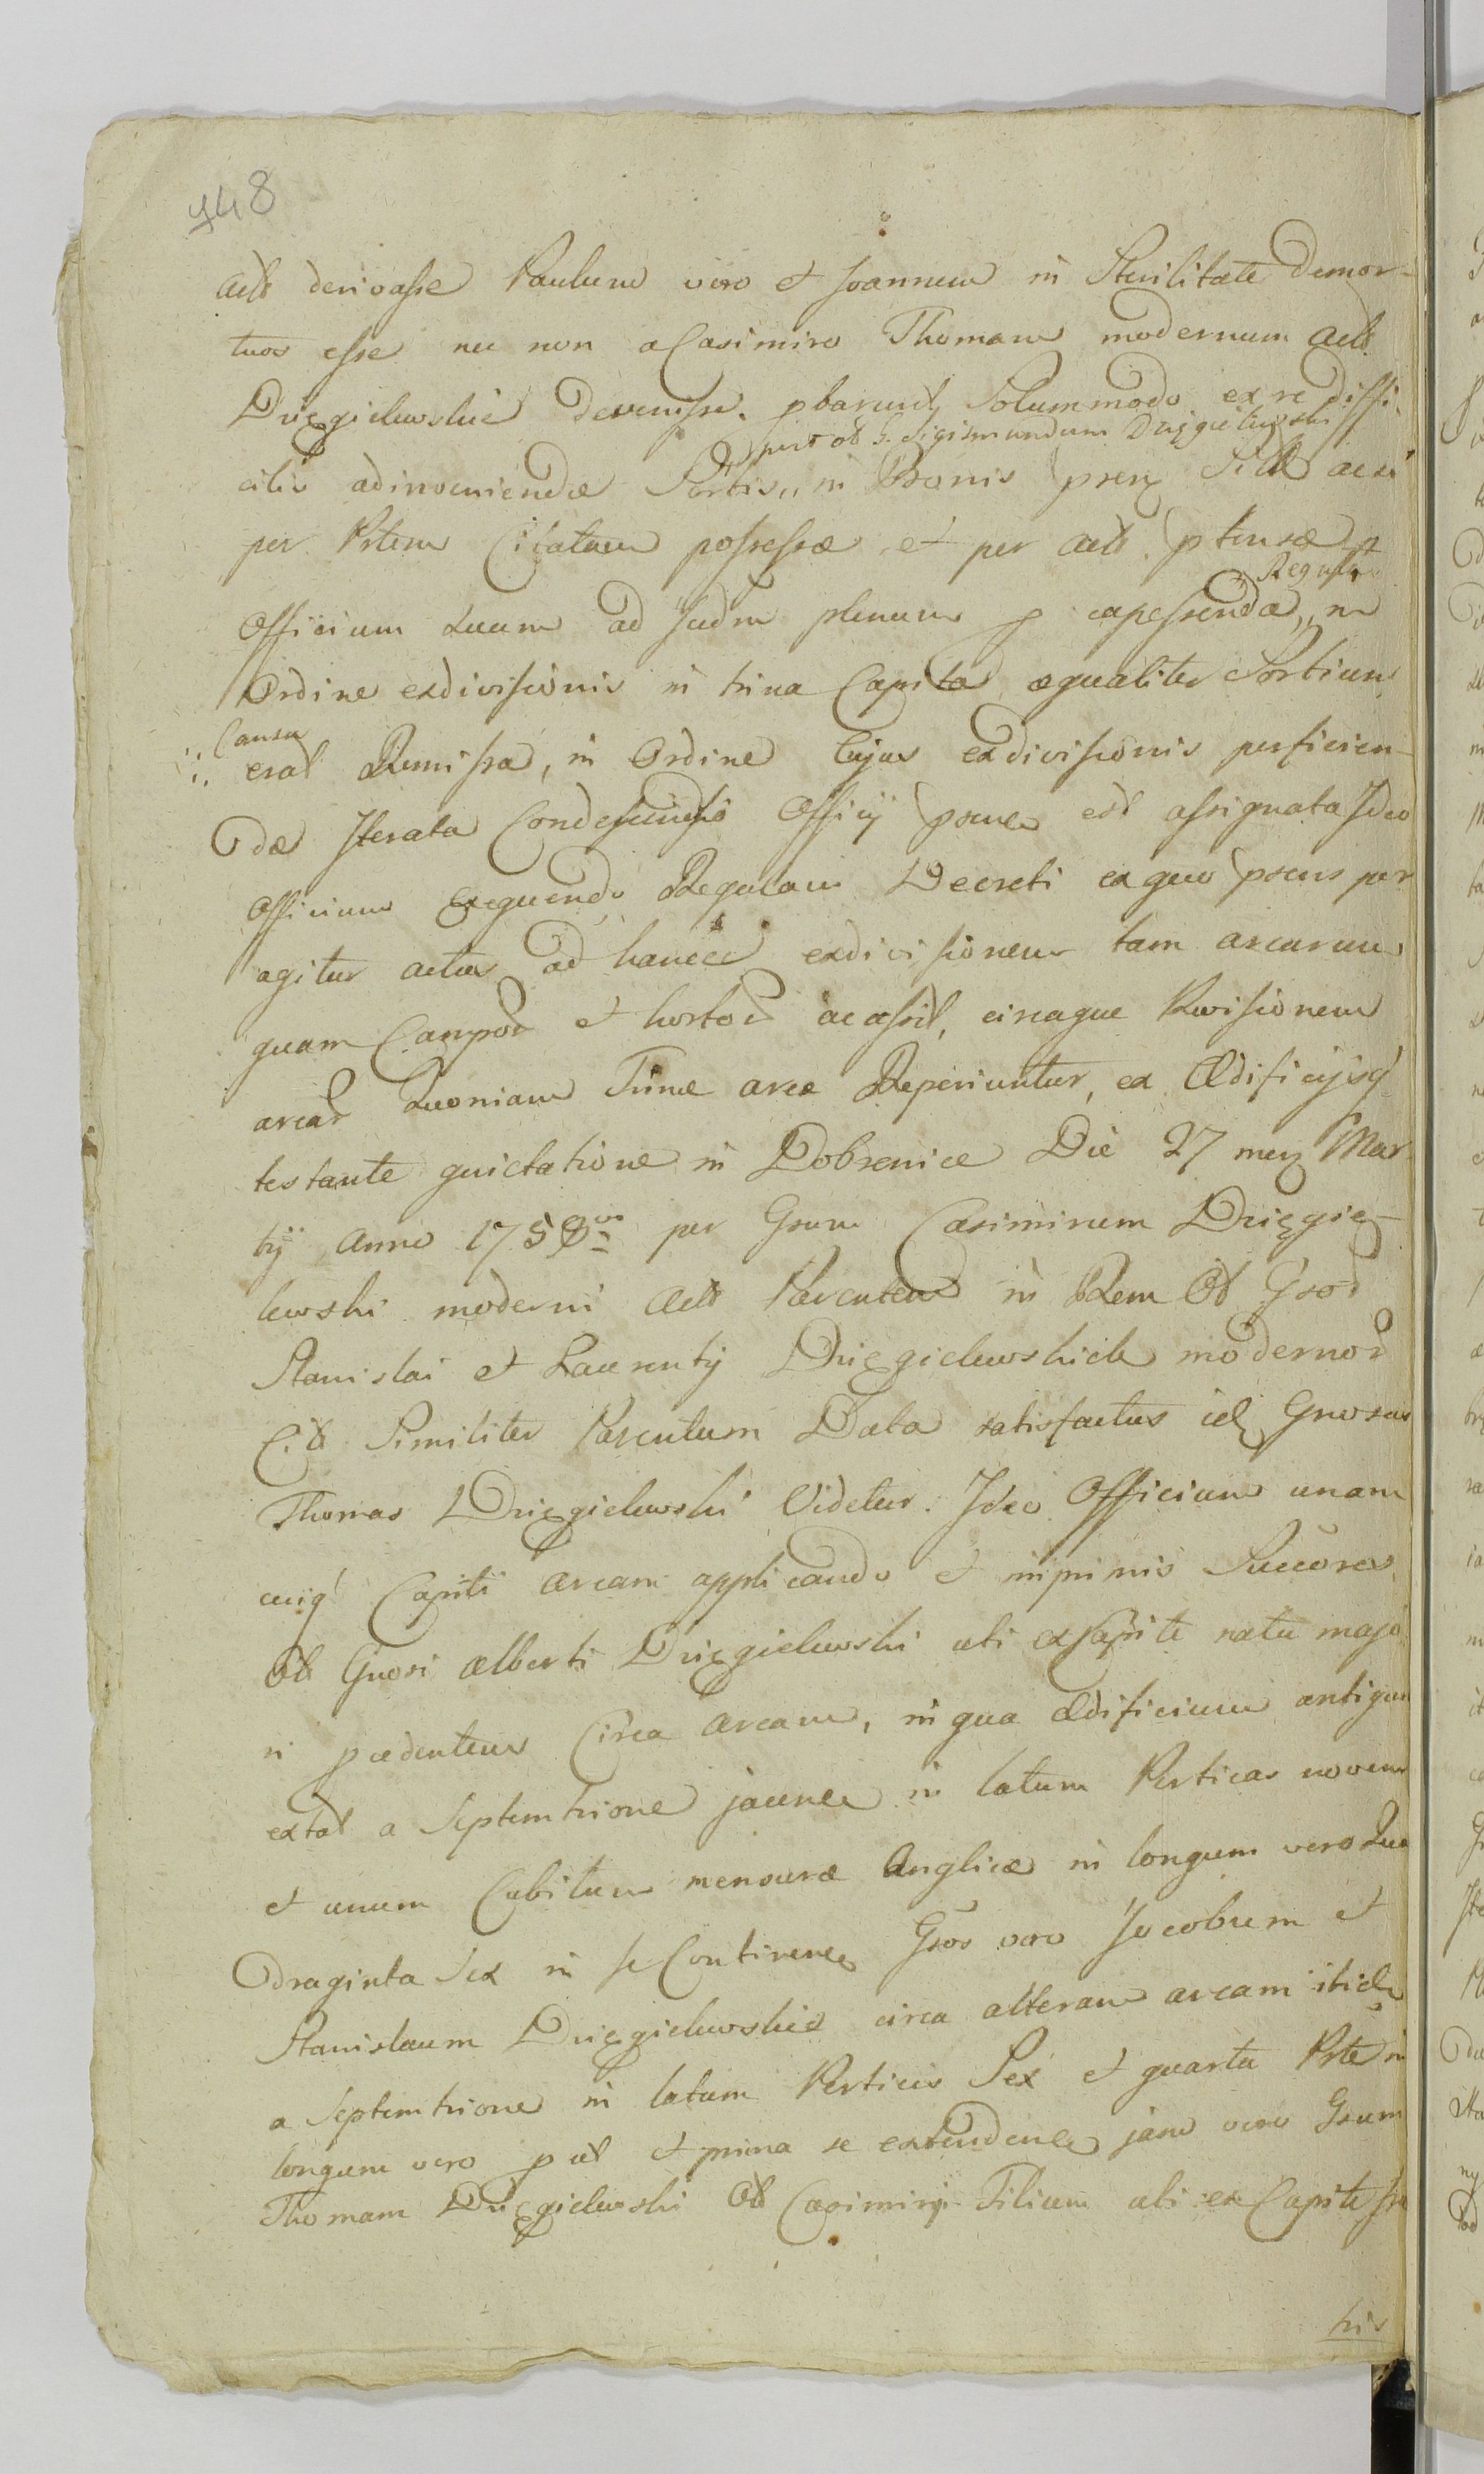 748
actt derivasse Paulum vero et Joannem in Sterilitate demor-
tuos esse nec non a Casimiro Thomam modernum actt
Dzięgielewskie devenisse. pbarunt, Solummodo ex re diffi-
per ol G. Sigismundum Dzięgielewski
cilis adinveniendæ Sortis,, in Bonis prenz acsi
per Prtem Citatam possessæ, et per actt. ptensæ p
Regula
Officium Suum ad Judm plenum p capessendæ,, in
Ordine exdivisionis in trina Capita æqualiter Sortium
Causa
erat Remissa, in Ordine Cujus exdivisionis perficien-
dæ Iterata Condescensio Officij psens est assignata Ideo
Officium Exequendo Regulam Decreti ex quo psens per
agitur actus ad hancce exdivisionem tam arearum
quam Campor et hortor accessit, circaque Revisionem
arear Quoniam Trinæ areæ Reperiuntur, ex Ædificijsq
testante quietatione in Dobrenice Die 27 menz Mar
tij Anno 1758 per Gsum Casimirum Dzięgie-
lewski moderni Actt Parentem in Rem Ol Gsor
Stanislai et Laurentij Dzięgielewskich modernor
Citt Similiter Parentum Data satisfactus idz Gnosus
Thomas Dzięgielewski Videtur. Ideo Officium unam
cuiq Capiti aream applicando et inprimis Succores
Ol Gnosi Alberti Dzięgielewski uti ex Capite natu majo
ri pcedentem Circa Aream, in qua Ædificium antiquu
extat a Septemtrione jacens in latum Perticas novem
et unum Cubitum mensuræ Anglicæ in longum vero Qua
draginta Sex in se Continens Gsos vero Jacobum et
Stanislaum Dzięgielewskie circa alteram aream itidz
a Septemtrione in latum Perticis Sex et quarta Prte in
longum vero p ut et prima se extendens jam vero Gsum
Thomam Dzięgielewski Ol Casimiri Filium uti ex Capite
tris